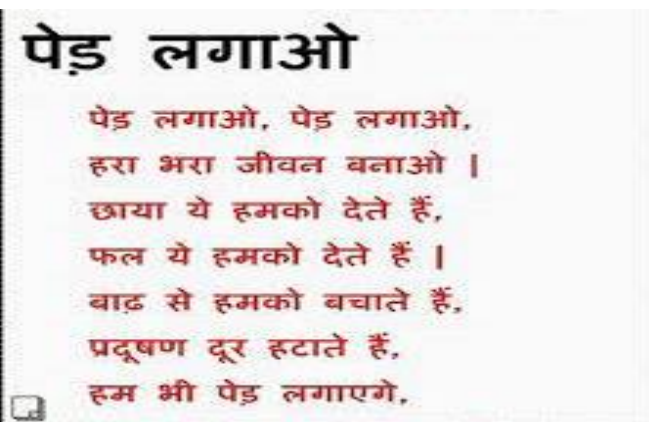 पेड़ लगाओ
पेड़ लगाओ, पेड़ लगाओ,
हरा भरा जीवन बनाओ |
छाया ये हमको देते हैं,
फल ये हमको देते हैं |
बाढ़ से हमको बचाते हैं,
प्रदूषण दूर हटाते हैं,
हम भी पेड़ लगाएगे,